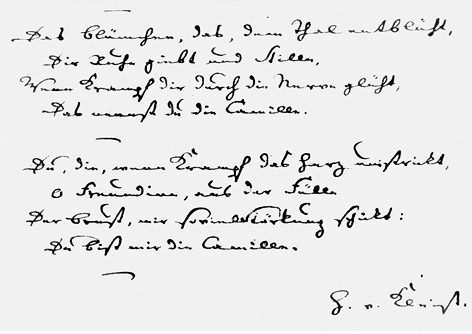 Das Blümchen, das, dem Thal entblüht,
Dir Ruhe giebt und Stille,
Wenn Krampf dir durch die Nerve glüht,
Das nennst du die Camille.
Du, die, wenn Krampf das Herz umstrickt,
O Freundinn, aus der Fülle
Der Brust, mir soviel Stärkung schikt:
Du bist mir die Camille.
H. v. Kleist.